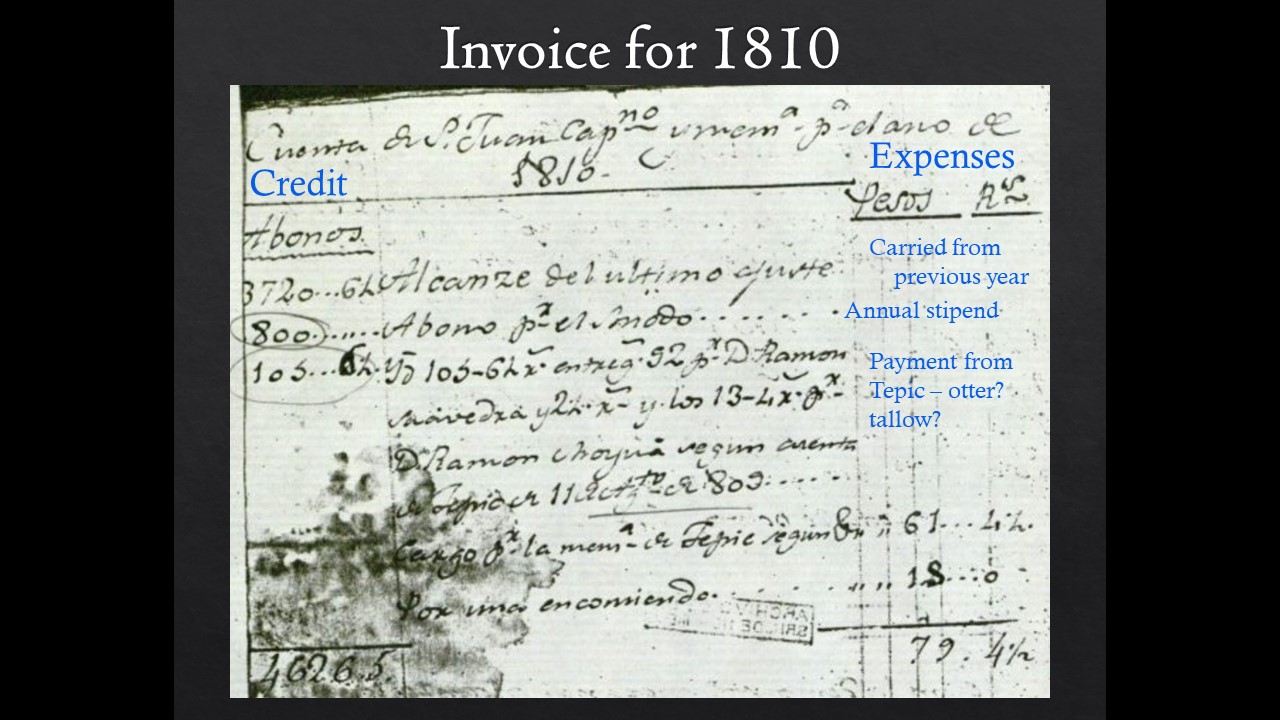 Invoice for 1810
Cuenta de S. Juan Capno y memª pª el ano de
1810.
Credit
Expenses
Pesos Rs
Abonos
Carried from
previous year
3720...6½ Alcanze del ultimo ajuste
Annual stipend
800...... Abono pr el Sinodo........
105...6½. Yd 105-6½ r entreg. 92 pr D Ramon
Payment from
Tepic – otter?
tallow?
Saavedra y 2½ r y los 13-4 r pr
D Ramon segun cuenta
de Tepic de 11 de Agto de 809......
Cargo pr la memª de Tepic segun 61... 4½.
Por una encomienda......... 18...0
79. 4½
4626 5.